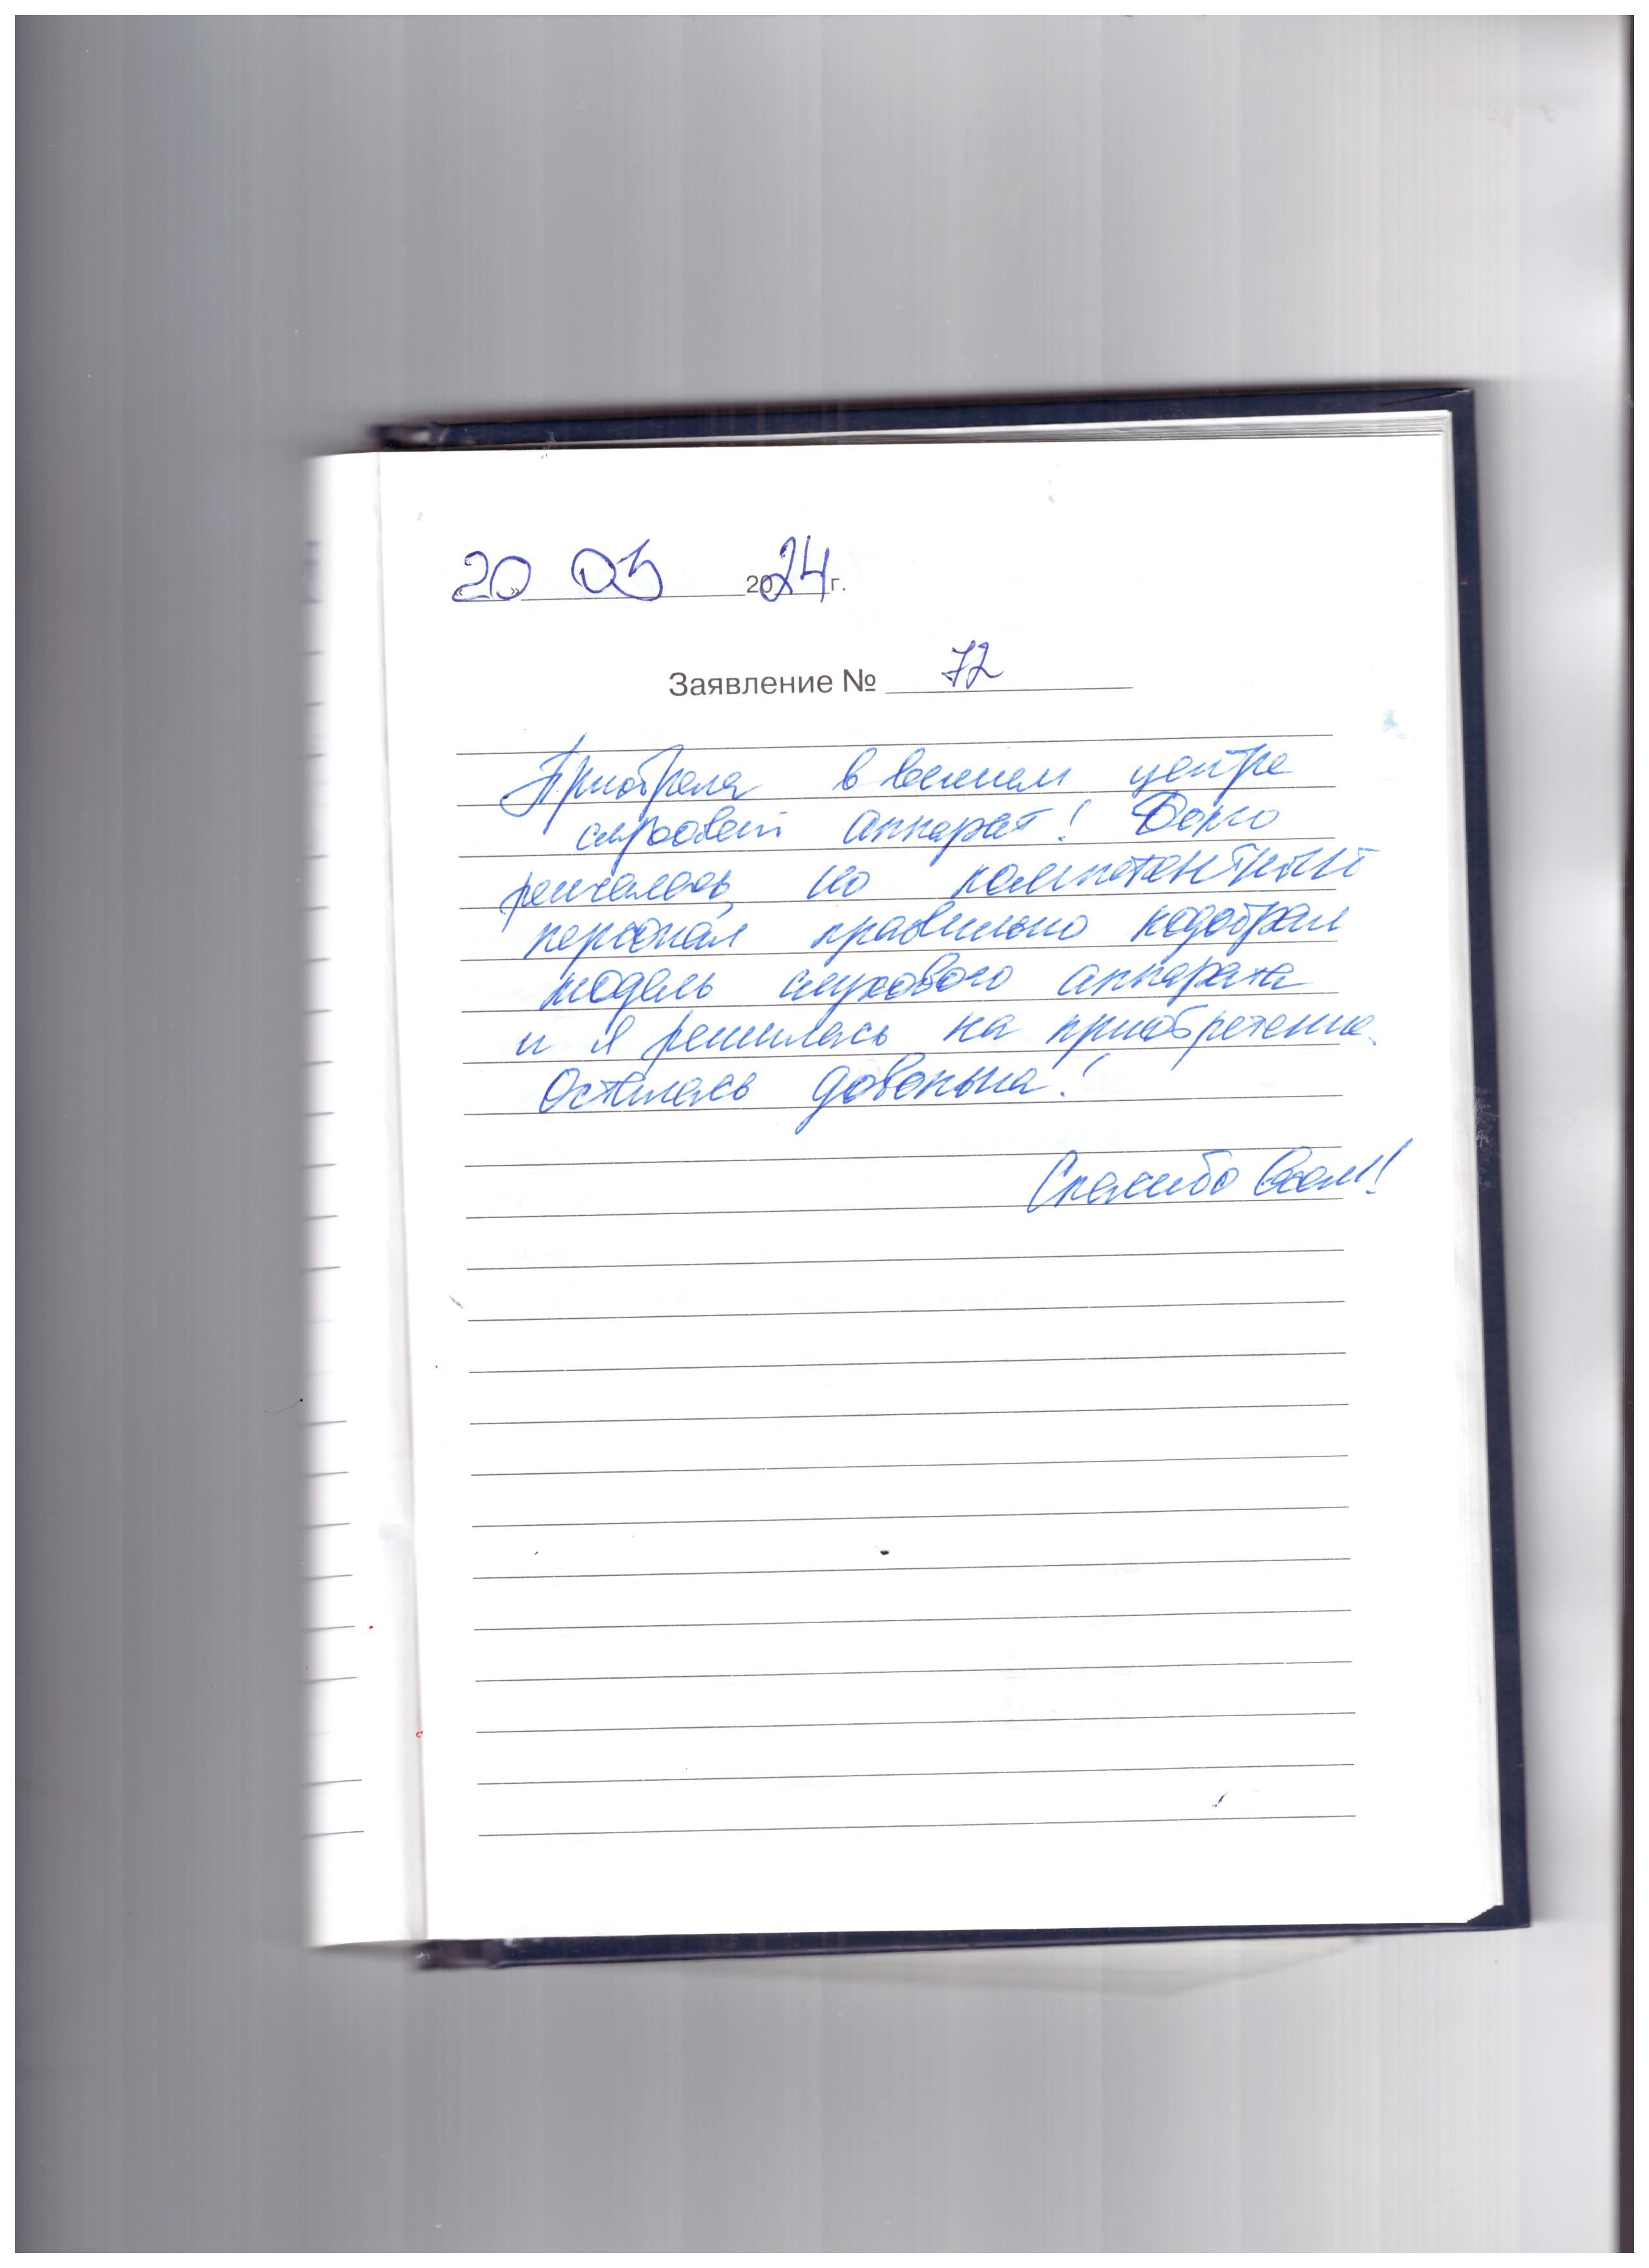 20 03 2024 г.
Заявление № 72
Приобрела в вашем центре
слуховой аппарат! Долго
решалась, но компетентный
персонал правильно подобрал
модель слухового аппарата
и я решилась на приобретение.
Осталась довольна!
Спасибо Вам!